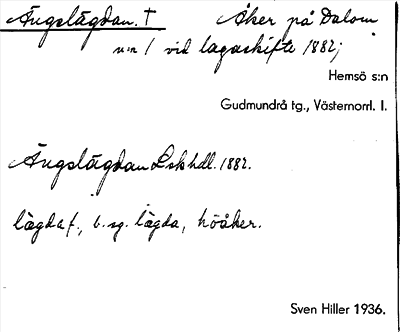 Ängslägdan. † Åker på Dalom
n:o 1 vid lagaskifte 1882;
Hemsö s:n
Gudmundrå tg., Västernorrl. l.
Ängslägdan Lskhdl. 1882.
lägda f., b. sg. lägda, höåker.
Sven Hiller 1936.